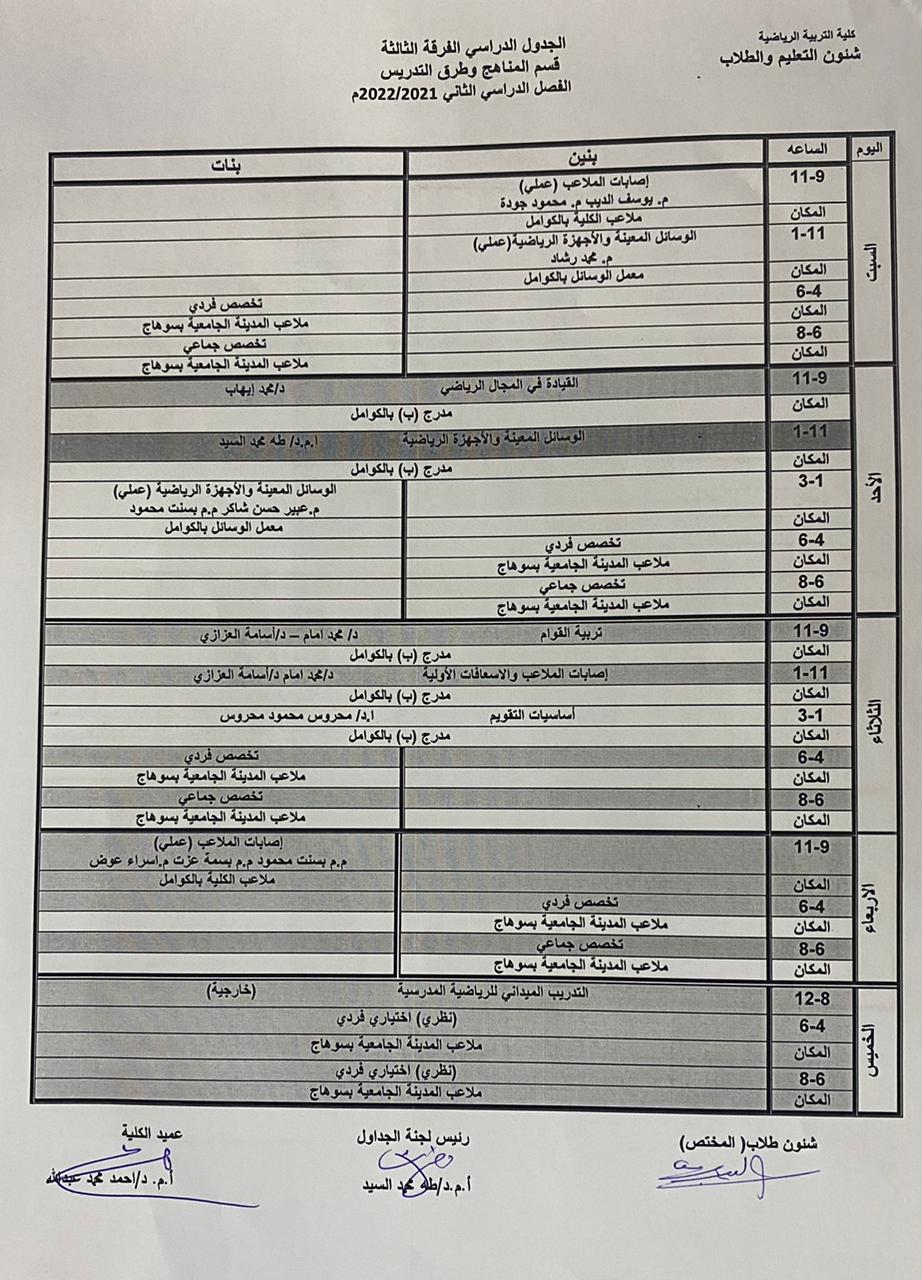 كلية التربية الرياضية
شئون التعليم والطلاب
الجدول الدراسي الفرقة الثالثة
قسم المناهج وطرق التدريس
الفصل الدراسي الثاني 2022/2021م
اليوم الساعه بنين بنات
السبت
11-9 إصابات الملاعب (عملي)
م. يوسف الديب م. محمود جودة
المكان ملاعب الكلية بالكوامل
1-11 الوسائل المعينة والأجهزة الرياضية(عملي)
م. محمد رشاد
المكان معمل الوسائل بالكوامل
6-4 تخصص فردي
المكان ملاعب المدينة الجامعية بسوهاج
8-6 تخصص جماعي
المكان ملاعب المدينة الجامعية بسوهاج
الأحد
11-9 القيادة في المجال الرياضي د/محمد إيهاب
المكان مدرج (ب) بالكوامل
1-11 الوسائل المعينة والأجهزة الرياضية ا.م.د/ طه محمد السيد
المكان مدرج (ب) بالكوامل
3-1 الوسائل المعينة والأجهزة الرياضية (عملي)
م.عبير حسن شاكر م.م بسنت محمود
المكان معمل الوسائل بالكوامل
6-4 تخصص فردي
المكان ملاعب المدينة الجامعية بسوهاج
8-6 تخصص جماعي
المكان ملاعب المدينة الجامعية بسوهاج
الثلاثاء
11-9 تربية القوام د/ محمد امام – د/أسامة العزازي
المكان مدرج (ب) بالكوامل
1-11 إصابات الملاعب والاسعافات الأولية د/محمد امام د/أسامة العزازي
المكان مدرج (ب) بالكوامل
3-1 أساسيات التقويم ا.د/ محروس محمود محروس
المكان مدرج (ب) بالكوامل
6-4 تخصص فردي
المكان ملاعب المدينة الجامعية بسوهاج
8-6 تخصص جماعي
المكان ملاعب المدينة الجامعية بسوهاج
الاربعاء
11-9 إصابات الملاعب (عملي)
م.م بسنت محمود م.م بسمة عزت م.اسراء عوض
المكان ملاعب الكلية بالكوامل
6-4 تخصص فردي
المكان ملاعب المدينة الجامعية بسوهاج
8-6 تخصص جماعي
المكان ملاعب المدينة الجامعية بسوهاج
الخميس
12-8 التدريب الميداني للرياضية المدرسية (خارجية)
6-4 (نظري) اختياري فردي
المكان ملاعب المدينة الجامعية بسوهاج
8-6 (نظري) اختياري فردي
المكان ملاعب المدينة الجامعية بسوهاج
شئون طلاب( المختص) رئيس لجنة الجداول عميد الكلية
أ.م.د/طه محمد السيد أ.م. د/احمد محمد عبدالله